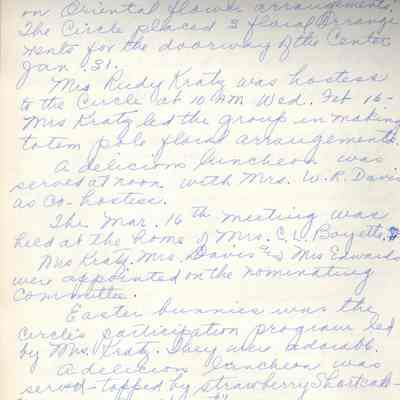 on Oriental flower arrangements.
The Circle placed 3 floral arrange
ments for the doorway of the Center
Jan. 31.
Mrs Rudy Kratz was hostess
to the Circle at 10 AM Wed. Feb 16-
Mrs Kratz led the group in making
totem pole floral arrangements.
A delicious luncheon was
served at noon with Mrs. W. R. Davis
as Co-hostess.
The Mar. 16th meeting was
held at the home of Mrs. C. V. Boyette.
Mrs Kratz, Mrs. Davis and Mrs Edwards
were appointed on the nominating
Committee.
Easter bunnies was the
Circle's participation program led
by Mrs. Kratz. They were adorable.
A delicious luncheon was
served - topped by strawberry Shortcake-